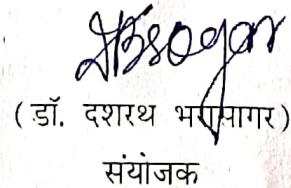 (डॉ. दशरथ भरसागर)
संयोजक